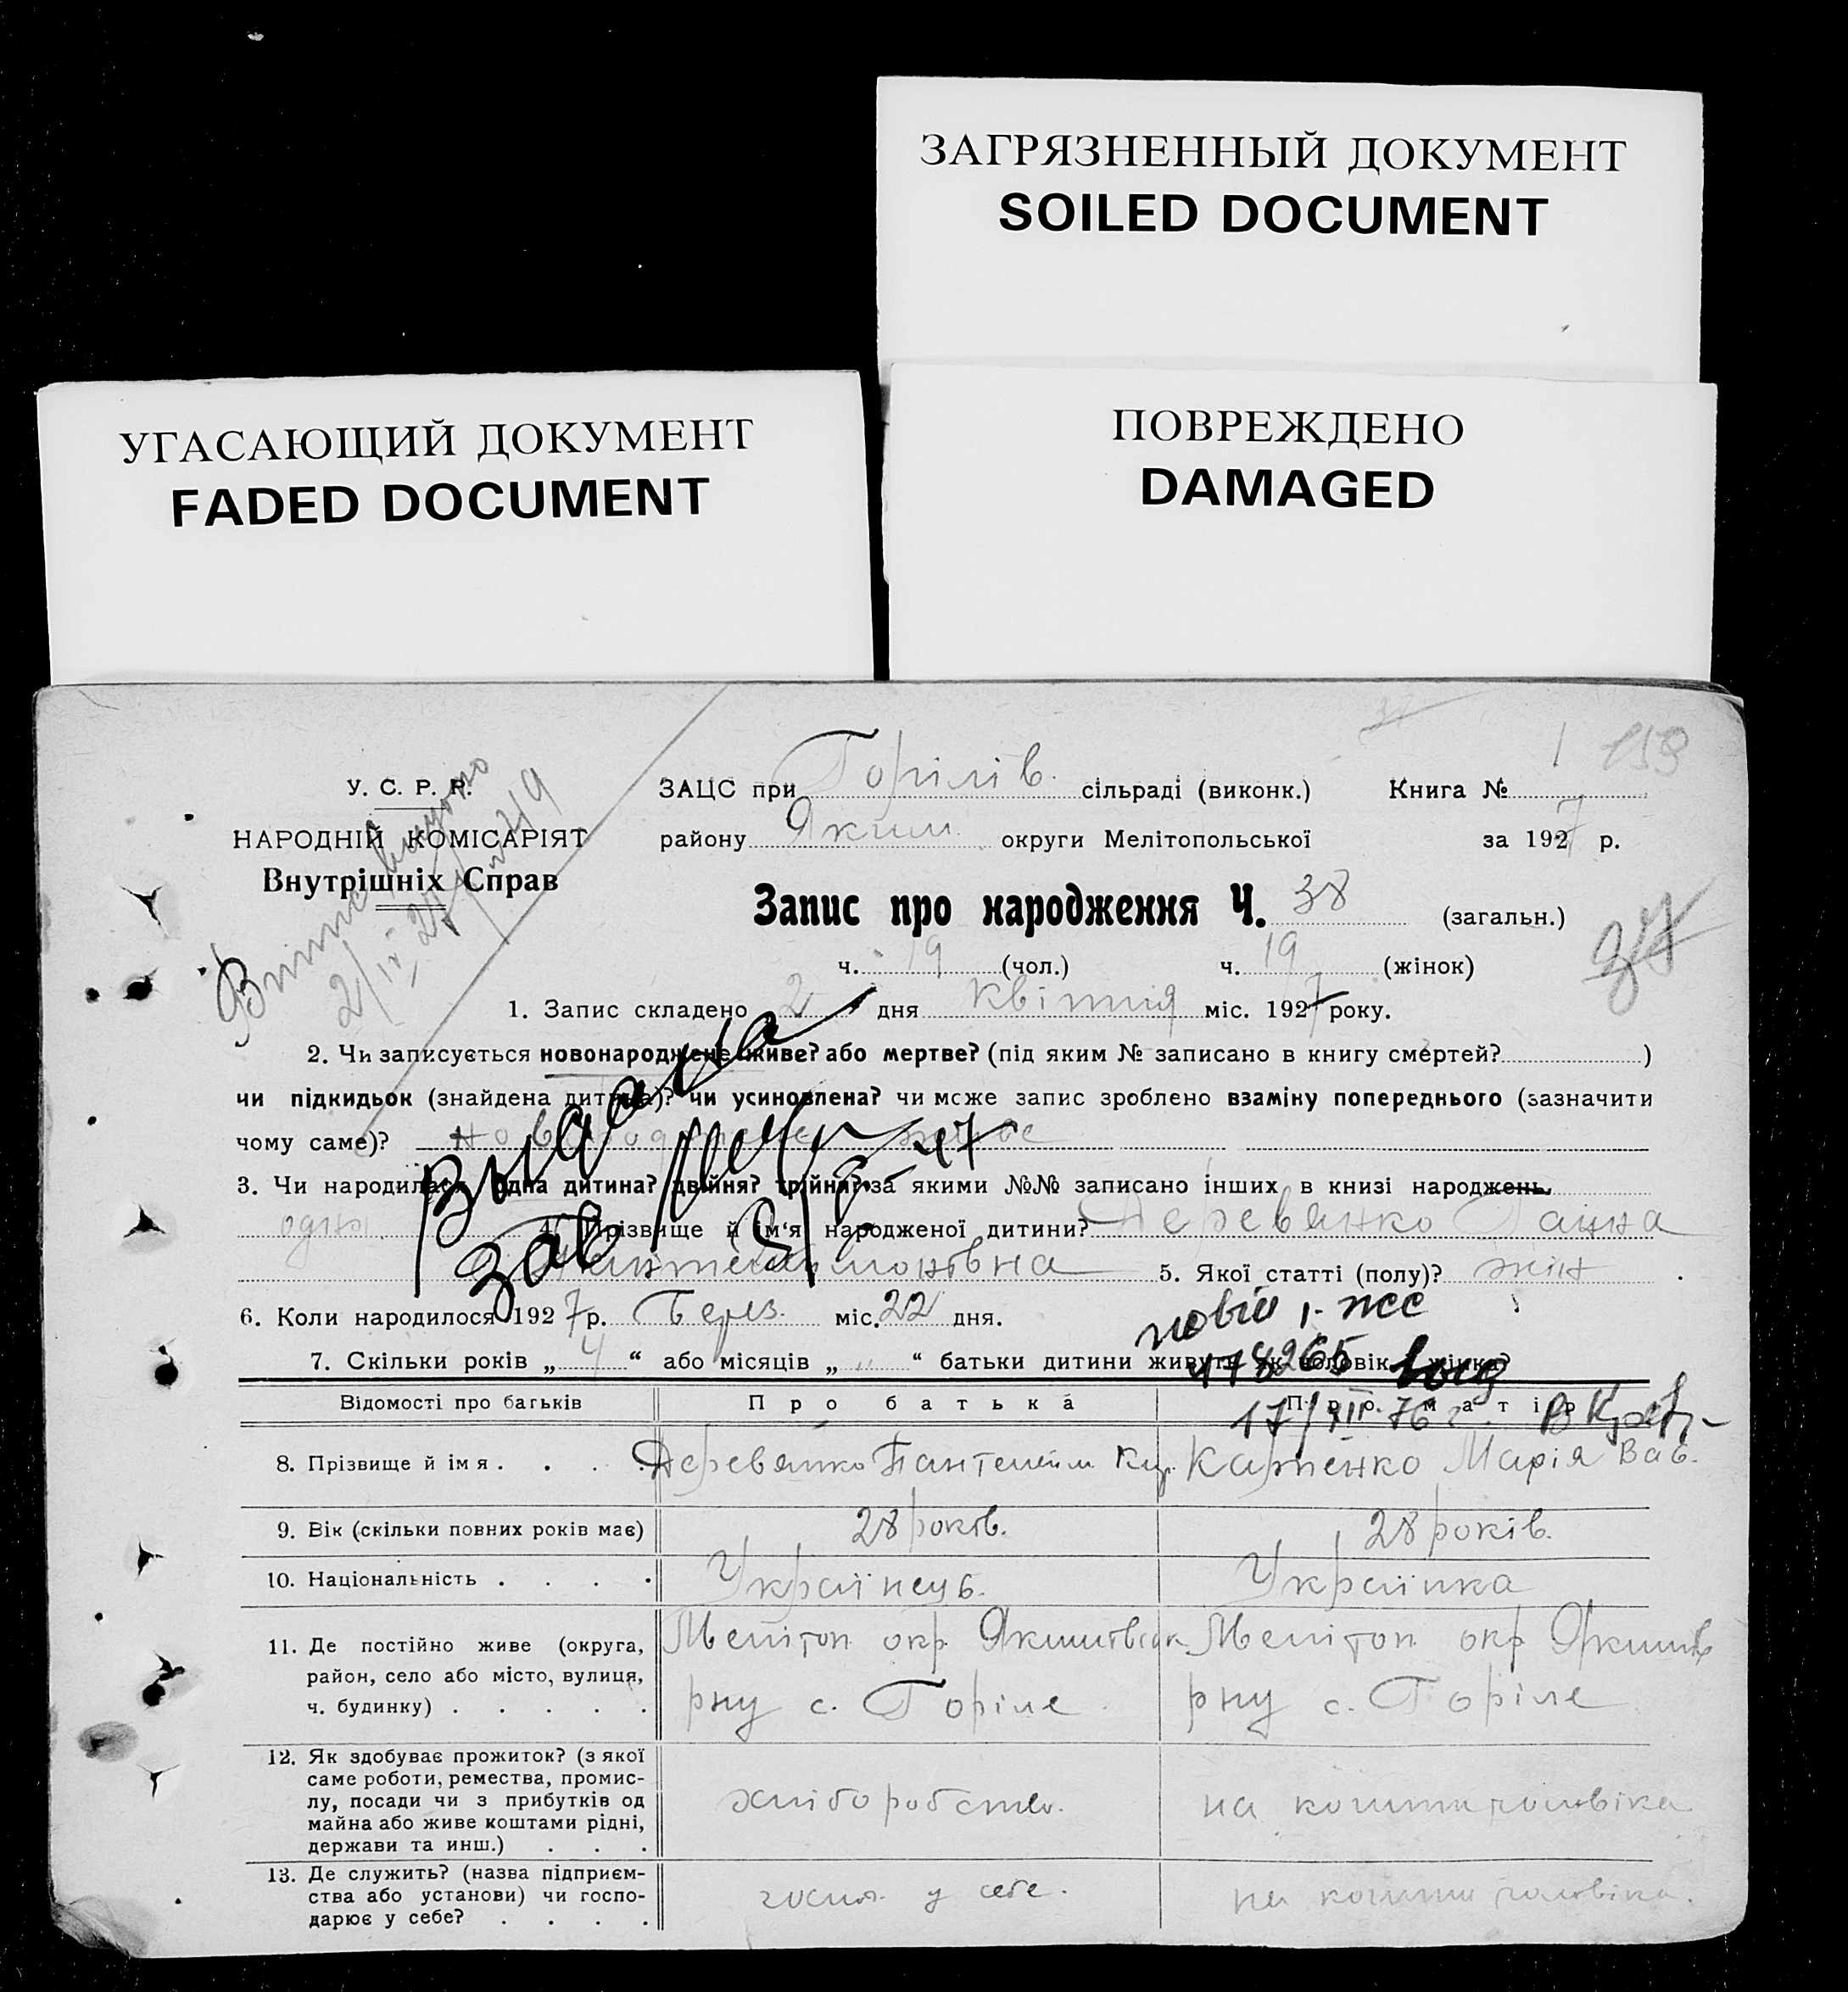 ЗАГРЯЗНЕННЫЙ ДОКУМЕНТ
SOILED DOCUMENT
УГАСАЮЩИЙ ДОКУМЕНТ
FADED DOCUMENT
ПОВРЕЖДЕНО
DAMAGED
153
У. С. Р. Р.
НАРОДНІЙ КОМІСАРІЯТ
Внутрішніх Справ
ЗАЦС при Горілів. сільраді (виконк.) Книга №
району Яким. округи Мелітопольської за 1927 р.
Запис про народження Ч. 38 (загальн.)
37
ч. 19 (чол.) ч. 19 (жінок)
1. Запис складено 2 дня квітния міс. 1927 року.
2. Чи записується новонароджене живе? або мертве? (під яким № записано в книгу смертей? )
чи підкидьок (знайдена дитина)? чи усиновлена? чи може запис зроблено взаміну попереднього (зазначити
чому саме)? новонароджене живе
3. Чи народилась одна дитина? двійня? трійня? за якими №№ записано інших в книзі народжень
одна. 4. Прізвище й ім'я народженої дитини? Деревянко Ганна
Пантелеймонівна 5. Якої статті (полу)? жін
6. Коли народилося 1927 р. Берез. міс. 22 дня.
7. Скільки років „ 4 “ або місяців „ " “ батьки дитини живуть як чоловік і жінка?
Видана
Зав
Відомості про батьків Про батька Про матір
8. Прізвище й імя . . . . Деревянко Пантелейм Кир. Карпенко Марія Вас.
9. Вік (скільки повних років має) 28 років. 28 років.
10. Національність . . . . Українець. Українка
11. Де постійно живе (округа, район, село або місто, вулиця, ч. будинку) . . . . .
Мелітоп окр Якимівськ рну с. Горіле
Мелітоп окр Якимів рну с. Горіле
12. Як здобуває прожиток? (з якої саме роботи, ремества, промис-
лу, посади чи з прибутків од
майна або живе коштами рідні,
держави та инш.) . . .
хліборобство. на кошти чоловіка
13. Де служить? (назва підприєм-
ства або установи) чи госпо-
дарює у себе? . . . .
госп. у себе. на кошти чоловіка.